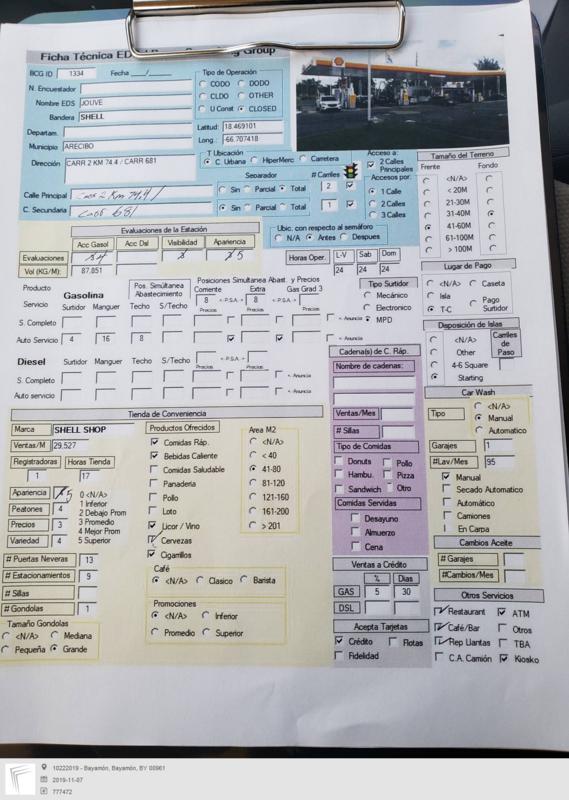 Ficha Técnica ED
Group
BCG ID 1334 Fecha __/__/__
N. Encuestador
Nombre EDS JOUVE
Bandera SHELL
Departam.
Municipio ARECIBO
Dirección CARR 2 KM 74.4 / CARR 681
Tipo de Operación
CODO DODO
CLDO OTHER
U Const CLOSED
Latitud: 18.469101
Long.: -66.707418
T Ubicación
C. Urbana HiperMerc Carretera
Separador # Carriles
Calle Principal Carr 2 Km 74.4/ Sin Parcial Total 2
C. Secundaria Carr 681 Sin Parcial Total 1
Acceso a:
2 Calles Principales
Accesos por:
1 Calle
2 Calles
3 Calles
Tamaño del Terreno
Frente Fondo
<N/A>
< 20M
21-30M
31-40M
41-60M
61-100M
> 100M
Evaluaciones de la Estación
Acc Gasol Acc Dsl Visibilidad Apariencia
Evaluaciones
Vol (KG/M): 87.851
Ubic. con respecto al semáforo
N/A Antes Despues
Horas Oper. L-V Sab Dom
24 24 24
Lugar de Pago
<N/A> Caseta
Isla Pago Surtidor
T-C
Producto
Servicio
Gasolina
Pos. Simultánea Abastecimiento
Posiciones Simultánea Abast. y Precios
Corriente Extra Gas Grad 3
8 <-P.S.A.-> 8 <-P.S.A.->
Surtidor Manguer Techo S/Techo Precios Precios Precios
S. Completo <- Anuncia
Auto Servicio 4 16 8 <- Anuncia
Tipo Surtidor
Mecánico
Electronico
MPD
Disposición de Islas
<N/A>
Other
4-6 Square
Starting
Carriles de Paso
Diesel Surtidor Manguer Techo S/Techo <-P.S.A.->
Precios Precios
S. Completo <- Anuncia
Auto servicio <- Anuncia
Cadena(s) de C. Ráp.
Nombre de cadenas:
Ventas/Mes
# Sillas
Tipo de Comidas
Donuts Pollo
Hambu. Pizza
Sandwich Otro
Comidas Servidas
Desayuno
Almuerzo
Cena
Car Wash
Tipo <N/A>
Manual
Automatico
Garajes 1
#Lav/Mes 95
Manual
Secado Automatico
Automático
Camiones
En Carpa
Cambios Aceite
# Garajes
#Cambios/Mes
Tienda de Conveniencia
Marca SHELL SHOP
Ventas/M 29.527
Registradoras Horas Tienda
1 17
Apariencia 5
Peatones 4
Precios 3
Variedad 4
0 <N/A>
1 Inferior
2 Debajo Prom
3 Promedio
4 Mejor Prom
5 Superior
# Puertas Neveras 13
# Estacionamientos 9
# Sillas
# Gondolas 1
Tamaño Gondolas
<N/A> Mediana
Pequeña Grande
Productos Ofrecidos
Comidas Ráp.
Bebidas Caliente
Comidas Saludable
Panaderia
Pollo
Loto
Licor / Vino
Cervezas
Cigarrillos
Area M2
<N/A>
< 40
41-80
81-120
121-160
161-200
> 201
Café
<N/A> Clasico Barista
Promociones
<N/A> Inferior
Promedio Superior
Ventas a Crédito
% Dias
GAS 5 30
DSL
Acepta Tarjetas
Crédito Flotas
Fidelidad
Otros Servicios
Restaurant ATM
Café/Bar Otros
Rep Llantas TBA
C.A. Camión Kiosko
10222019 - Bayamón, Bayamón, BY 00961
2019-11-07
777472